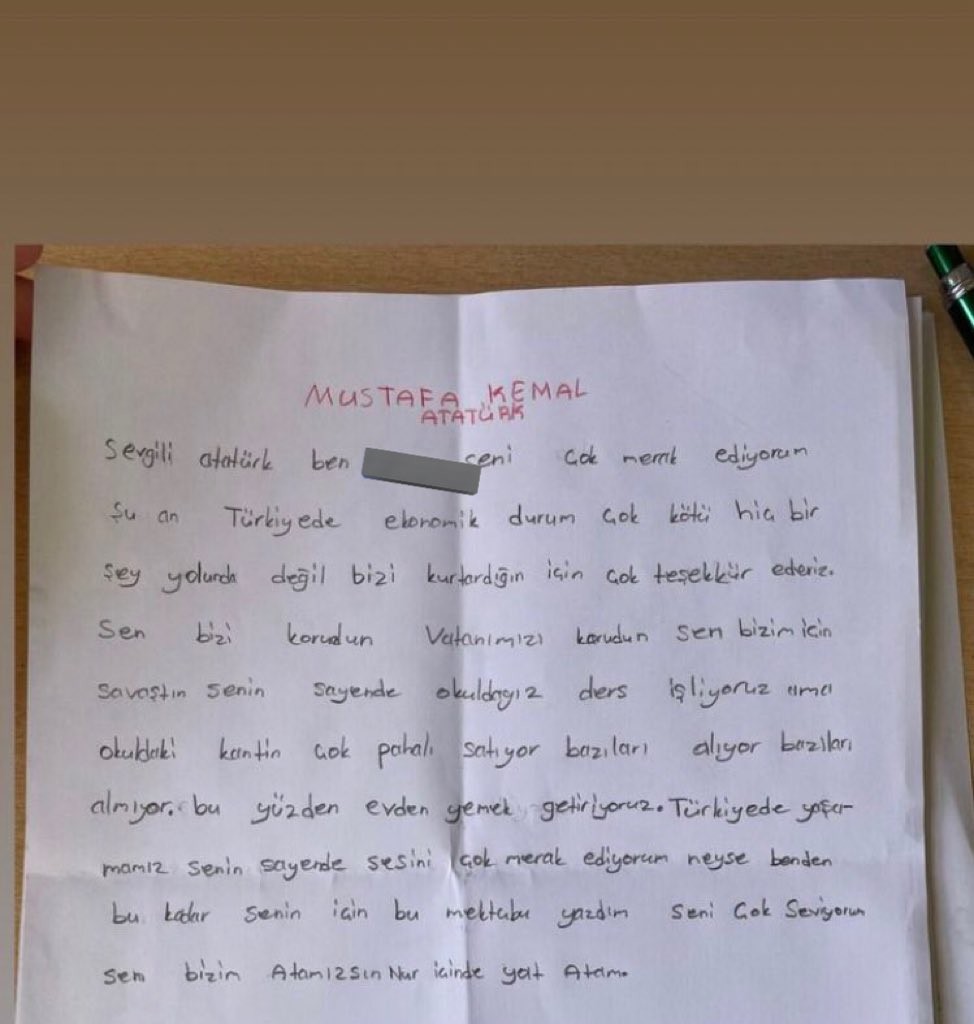 MUSTAFA KEMAL
ATATÜRK
Sevgili atatürk ben seni çok merak ediyorum
Şu an Türkiyede ekonomik durum çok kötü hiç bir
şey yolunda değil bizi kurtardığın için çok teşekkür ederiz.
Sen bizi korudun Vatanımızı korudun sen bizim için
savaştın senin sayende okuldayız ders işliyoruz ama
okuldaki kantin çok pahalı satıyor bazıları alıyor bazıları
almıyor. bu yüzden evden yemek getiriyoruz. Türkiyede yaşa-
mamız senin sayende sesini çok merak ediyorum neyse benden
bu kadar senin için bu mektubu yazdım seni çok seviyorum
sen bizim Atamızsın Nur içinde yat Atam.